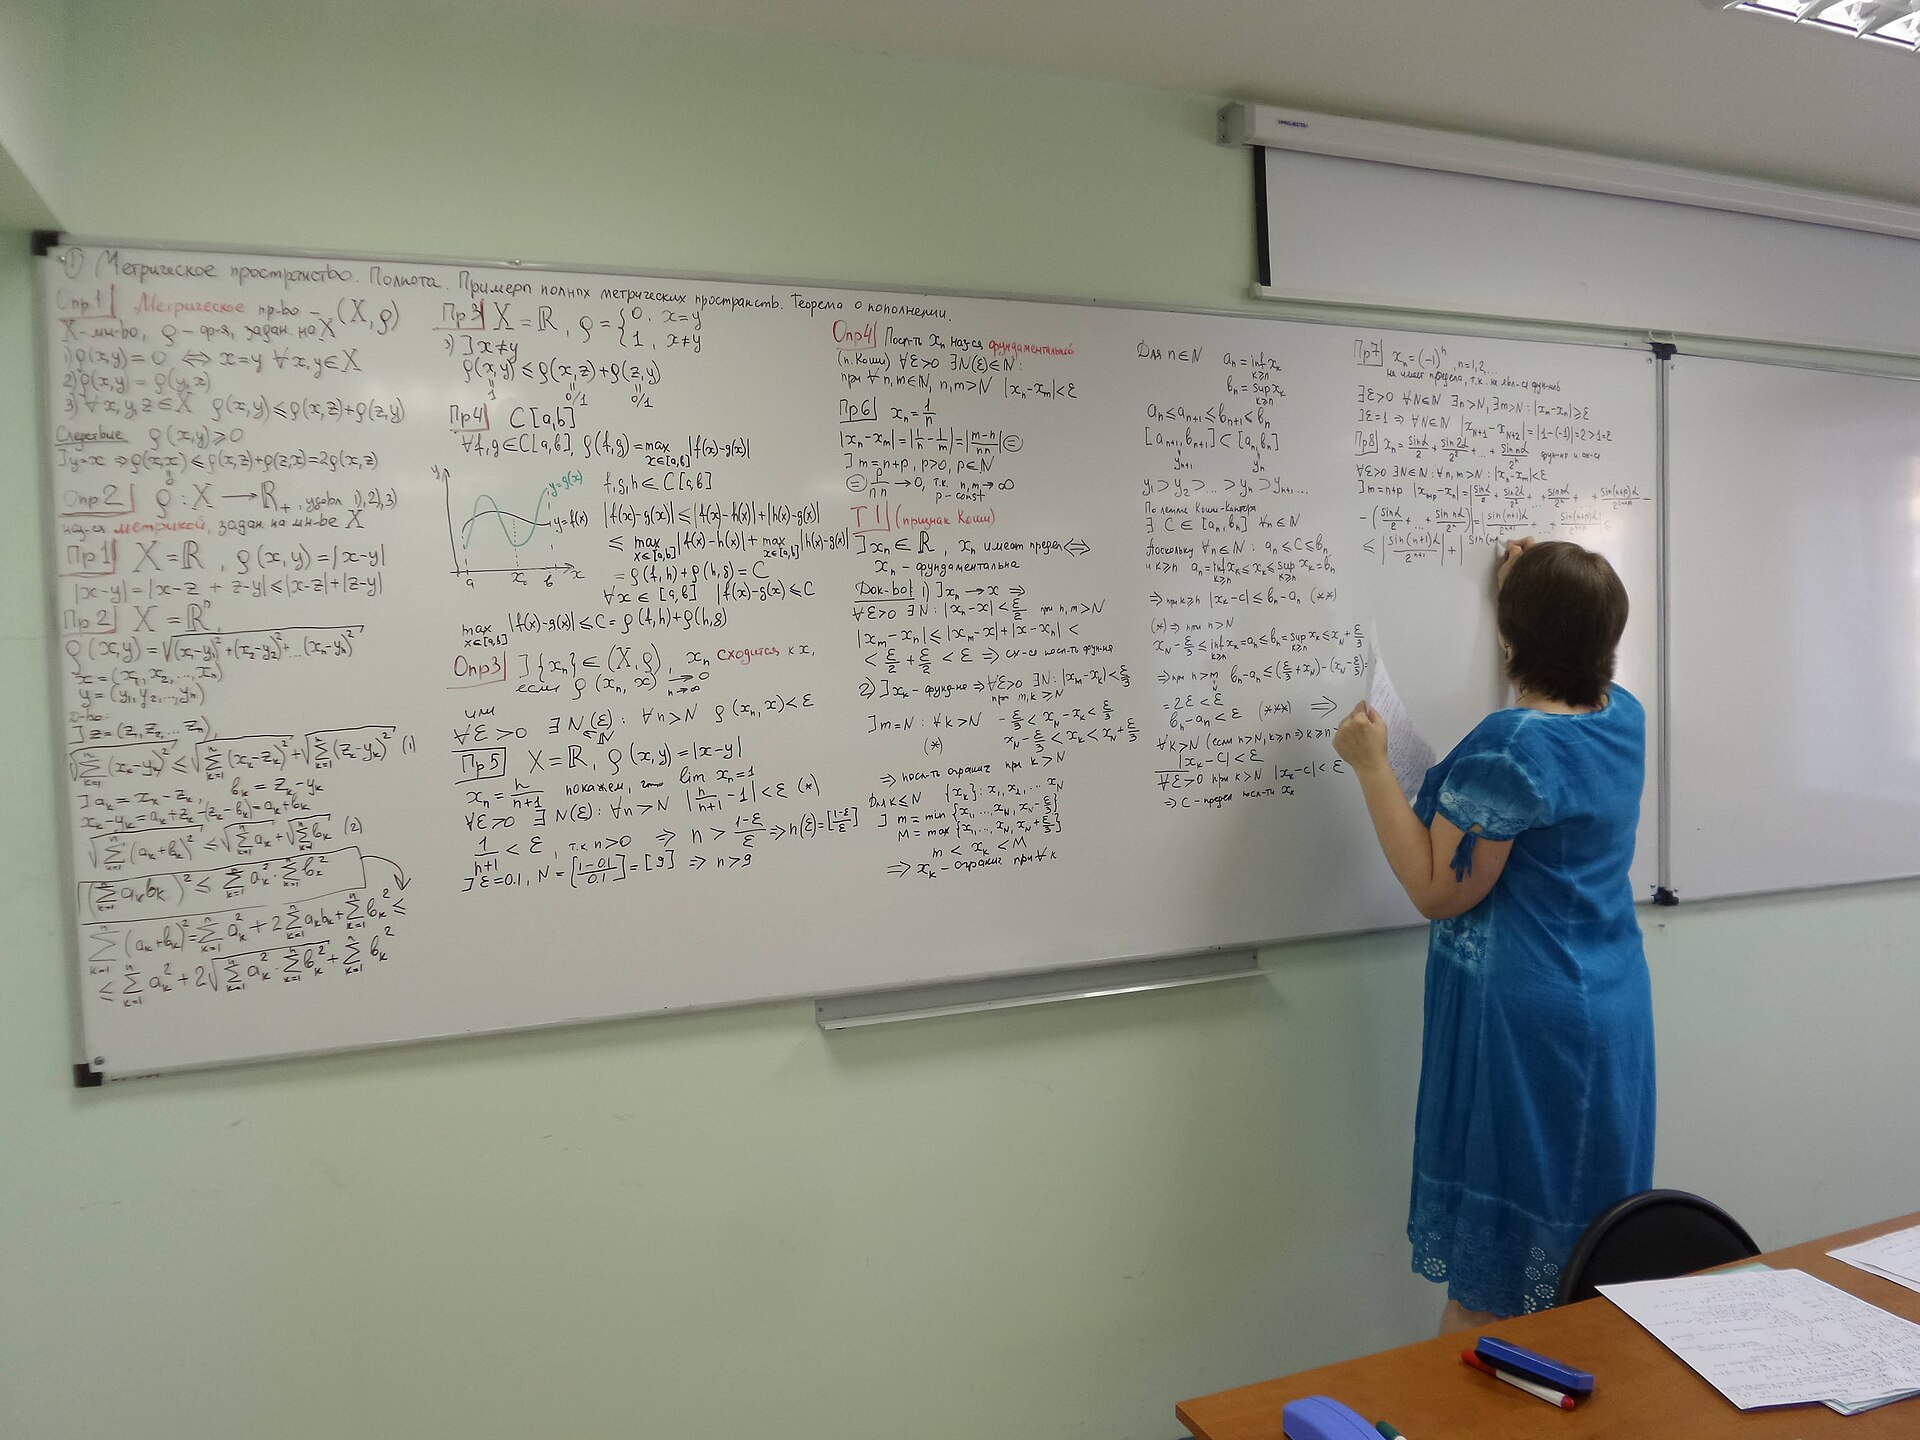 ① Метрическое пространство. Полнота. Примеры полных метрических пространств. Теорема о пополнении.
Опр1 Метрическое пр-во – (X, ρ)
X – мн-во, ρ – ф-я, задан. на X
1) ρ(x,y) = 0 ⇔ x=y ∀x,y∈X
2) ρ(x,y) = ρ(y,x)
3) ∀x,y,z∈X ρ(x,y) ≤ ρ(x,z)+ρ(z,y)
Следствие ρ(x,y) ≥ 0
] y=x ⇒ ρ(x,x) ≤ ρ(x,z)+ρ(z,x) = 2ρ(x,z)
0
Опр2 ρ: X → R₊, удовл 1),2),3)
наз-ся метрикой, задан на мн-ве X
Пр1 X = R, ρ(x,y) = |x-y|
|x-y| = |x-z + z-y| ≤ |x-z|+|z-y|
Пр2 X = Rⁿ,
ρ(x,y) = √((x₁-y₁)²+(x₂-y₂)²+...(xₙ-yₙ)²)
x = (x₁, x₂, ..., xₙ)
y = (y₁, y₂, ..., yₙ)
] z = (z₁, z₂, ... zₙ),
√(∑ₖ₌₁ⁿ(xₖ-yₖ)²) ≤ √(∑ₖ₌₁ⁿ(xₖ-zₖ)²) + √(∑ₖ₌₁ⁿ(zₖ-yₖ)²) (1)
] aₖ = xₖ - zₖ, bₖ = zₖ - yₖ
√(∑ₖ₌₁ⁿ(aₖ+bₖ)²) ≤ √(∑ₖ₌₁ⁿaₖ²) + √(∑ₖ₌₁ⁿbₖ²) (2)
(∑ₖ₌₁ⁿaₖbₖ)² ≤ ∑ₖ₌₁ⁿaₖ² · ∑ₖ₌₁ⁿbₖ²
∑ₖ₌₁ⁿ(aₖ+bₖ)² = ∑ₖ₌₁ⁿaₖ² + 2∑ₖ₌₁ⁿaₖbₖ + ∑ₖ₌₁ⁿbₖ² ≤
≤ ∑ₖ₌₁ⁿaₖ² + 2√(∑ₖ₌₁ⁿaₖ² · ∑ₖ₌₁ⁿbₖ²) + ∑ₖ₌₁ⁿbₖ²
Пр3 X = R, ρ = { 0, x=y
1, x≠y
3) ] x≠y
ρ(x,y) ≤ ρ(x,z)+ρ(z,y)
1 0/1 0/1
Пр4 C[a,b]
∀f,g∈C[a,b], ρ(f,g) = max x∈[a,b] |f(x)-g(x)|
y y=g(x)
y=f(x)
a x₀ b x
f,g,h ∈ C[a,b]
|f(x)-g(x)| ≤ |f(x)-h(x)|+|h(x)-g(x)|
≤ max x∈[a,b] |f(x)-h(x)| + max x∈[a,b] |h(x)-g(x)|
= ρ(f,h)+ρ(h,g) = C
∀x∈[a,b] |f(x)-g(x)| ≤ C
max x∈[a,b] |f(x)-g(x)| ≤ C = ρ(f,h)+ρ(h,g)
Опр3 ] {xₙ}∈(X,ρ), xₙ сходится к x,
если ρ(xₙ,x) → 0 n→∞
или
∀ε>0 ∃N(ε): ∀n>N ρ(xₙ,x)<ε
N
Пр5 X = R, ρ(x,y) = |x-y|
xₙ = n/(n+1) покажем, что lim xₙ = 1
∀ε>0 ∃N(ε): ∀n>N |n/(n+1) - 1| < ε (*)
1/(n+1) < ε, т.к. n>0 ⇒ n > (1-ε)/ε ⇒ n(ε) = [(1-ε)/ε]
] ε=0.1, N = [(1-0.1)/0.1] = [9] ⇒ n>9
Опр4 Посл-ть xₙ наз-ся фундаментальной
(п. Коши) ∀ε>0 ∃N(ε)∈N:
при ∀n,m∈N, n,m>N |xₙ-xₘ|<ε
Пр6 xₙ = 1/n
|xₙ-xₘ| = |1/n - 1/m| = |(m-n)/nm| ⊜
] m=n+p, p>0, p∈N
→ 0, т.к. n,m→∞
p-const
Т1 (признак Коши)
] xₙ∈R, xₙ имеет предел ⇔
xₙ – фундаментальна
Док-во 1) ] xₙ → x ⇒
∀ε>0 ∃N: |xₙ-x|<ε/2 при n,m>N
|xₘ-xₙ| ≤ |xₘ-x|+|x-xₙ| <
< ε/2 + ε/2 < ε ⇒ сх-ся посл-ть фун-на
2) ] xₖ – фунд-на ⇒ ∀ε>0 ∃N: |xₘ-xₖ|<ε/3
при m,k ≥ N
] m=N: ∀k>N -ε/3 < xₙ-xₖ < ε/3
(*) x_N - ε/3 < xₖ < x_N + ε/3
⇒ посл-ть огранич при k>N
Для k≤N {xₖ}: x₁, x₂, ... x_N
] m = min {x₁, ..., x_N, x_N-ε/3}
M = max {x₁, ..., x_N, x_N+ε/3}
m < xₖ < M
⇒ xₖ – огранич при ∀k
Для n∈N aₙ = inf xₖ k≥n
bₙ = sup xₖ k≥n
aₙ ≤ aₙ₊₁ ≤ bₙ₊₁ ≤ bₙ
[aₙ₊₁, bₙ₊₁] ⊂ [aₙ, bₙ]
yₙ₊₁ yₙ
y₁ ⊃ y₂ ⊃ ... ⊃ yₙ ⊃ yₙ₊₁...
По лемме Коши-Кантора
∃ C∈[aₙ,bₙ] ∀n∈N
Поскольку ∀n∈N: aₙ ≤ C ≤ bₙ
и k≥n aₙ = inf xₖ ≤ xₖ ≤ sup xₖ = bₙ
k≥n k≥n
⇒ при k≥n |xₖ-c| ≤ bₙ-aₙ (**)
(*) ⇒ при n>N
x_N - ε/3 ≤ inf xₖ = aₙ ≤ bₙ = sup xₖ ≤ x_N + ε/3
k≥n k≥n
bₙ-aₙ ≤ (ε/3+x_N)-(x_N-ε/3) =
= 2ε < ε
bₙ-aₙ < ε (***) ⇒
∀k>N (если n>N, k≥n ⇒ k≥n
|xₖ-C| < ε
∀ε>0 при k>N |xₖ-c| < ε
⇒ C – предел посл-ти xₖ
Пр7 xₙ = (-1)ⁿ, n=1,2,...
не имеет предела, т.к. не явл-ся фун-ной
∃ε>0 ∀N∈N ∃n>N, ∃m>N: |xₘ-xₙ| ≥ ε
] ε=1 ⇒ ∀N∈N |x_{N+1}-x_{N+2}| = |1-(-1)| = 2 > 1=ε
Пр8 xₙ = sinα/2 + sin2α/2² + ... + sin nα/2ⁿ
∀ε>0 ∃N∈N: ∀n,m>N: |xₙ-xₘ|<ε
] m=n+p |xₙ₊ₚ-xₙ| = |sinα/2 + sin2α/2² + ... + sin nα/2ⁿ + ... + sin(n+p)α/2ⁿ⁺ᵖ -
- (sinα/2 + ... + sin nα/2ⁿ)| = |sin(n+1)α/2ⁿ⁺¹ + ... + sin(n+p)α
≤ |sin(n+1)α/2ⁿ⁺¹| + |
PROJECTA